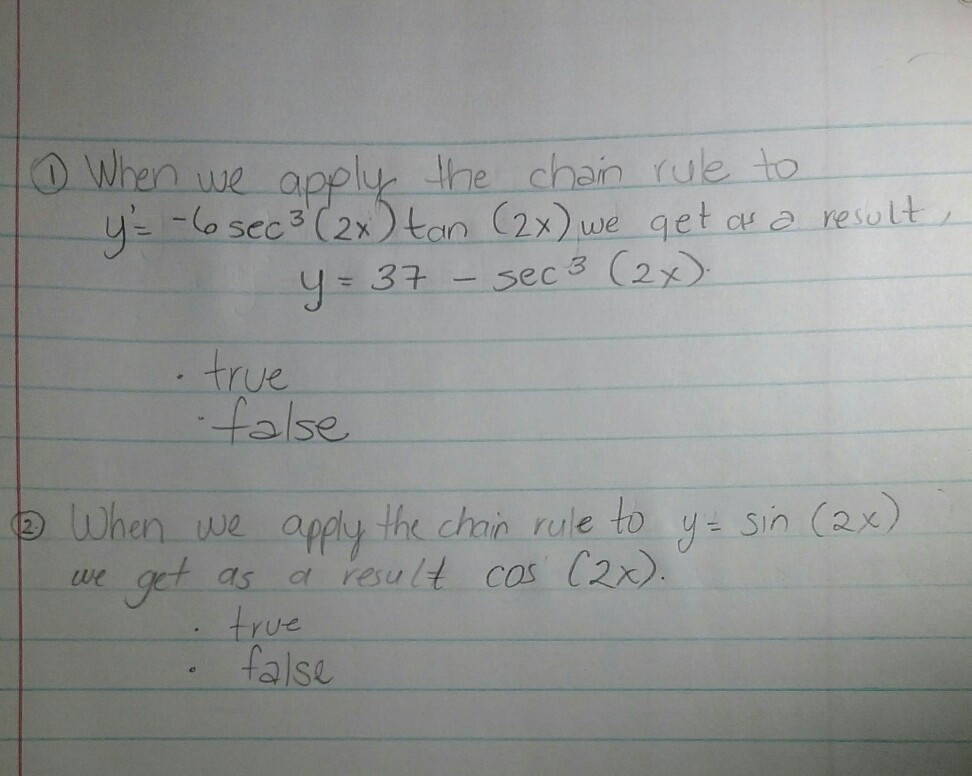 ① When we apply the chain rule to
y'= -6 sec³ (2x) tan (2x) we get as a result,
y = 37 - sec³ (2x).
· true
· false
② When we apply the chain rule to y = sin (2x)
we get as a result cos (2x).
· true
· false